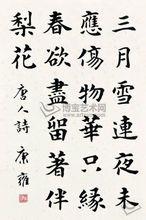 三月雪連夜未
應傷物華只緣
春欲盡留著伴
梨花 唐人詩 康雍
博宝艺术网